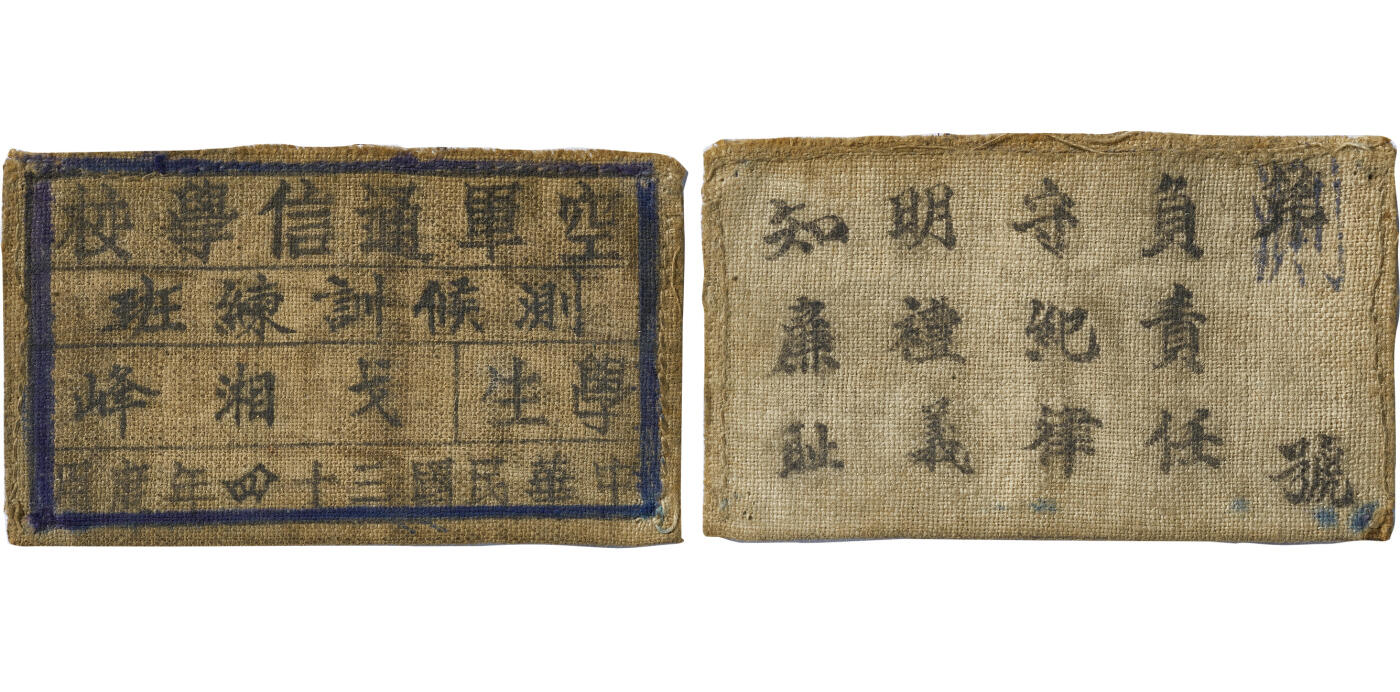 空軍通信學校
測候訓練班
學生 戈湘峰
中華民國三十四年度用
號
負責任
守紀律
明禮義
知廉恥